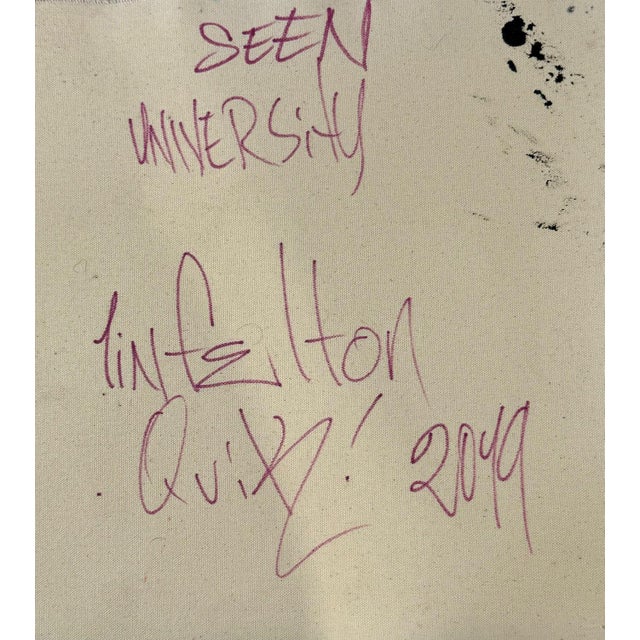 SEEN
UNIVERSitY
linfelton
Quik! 2019